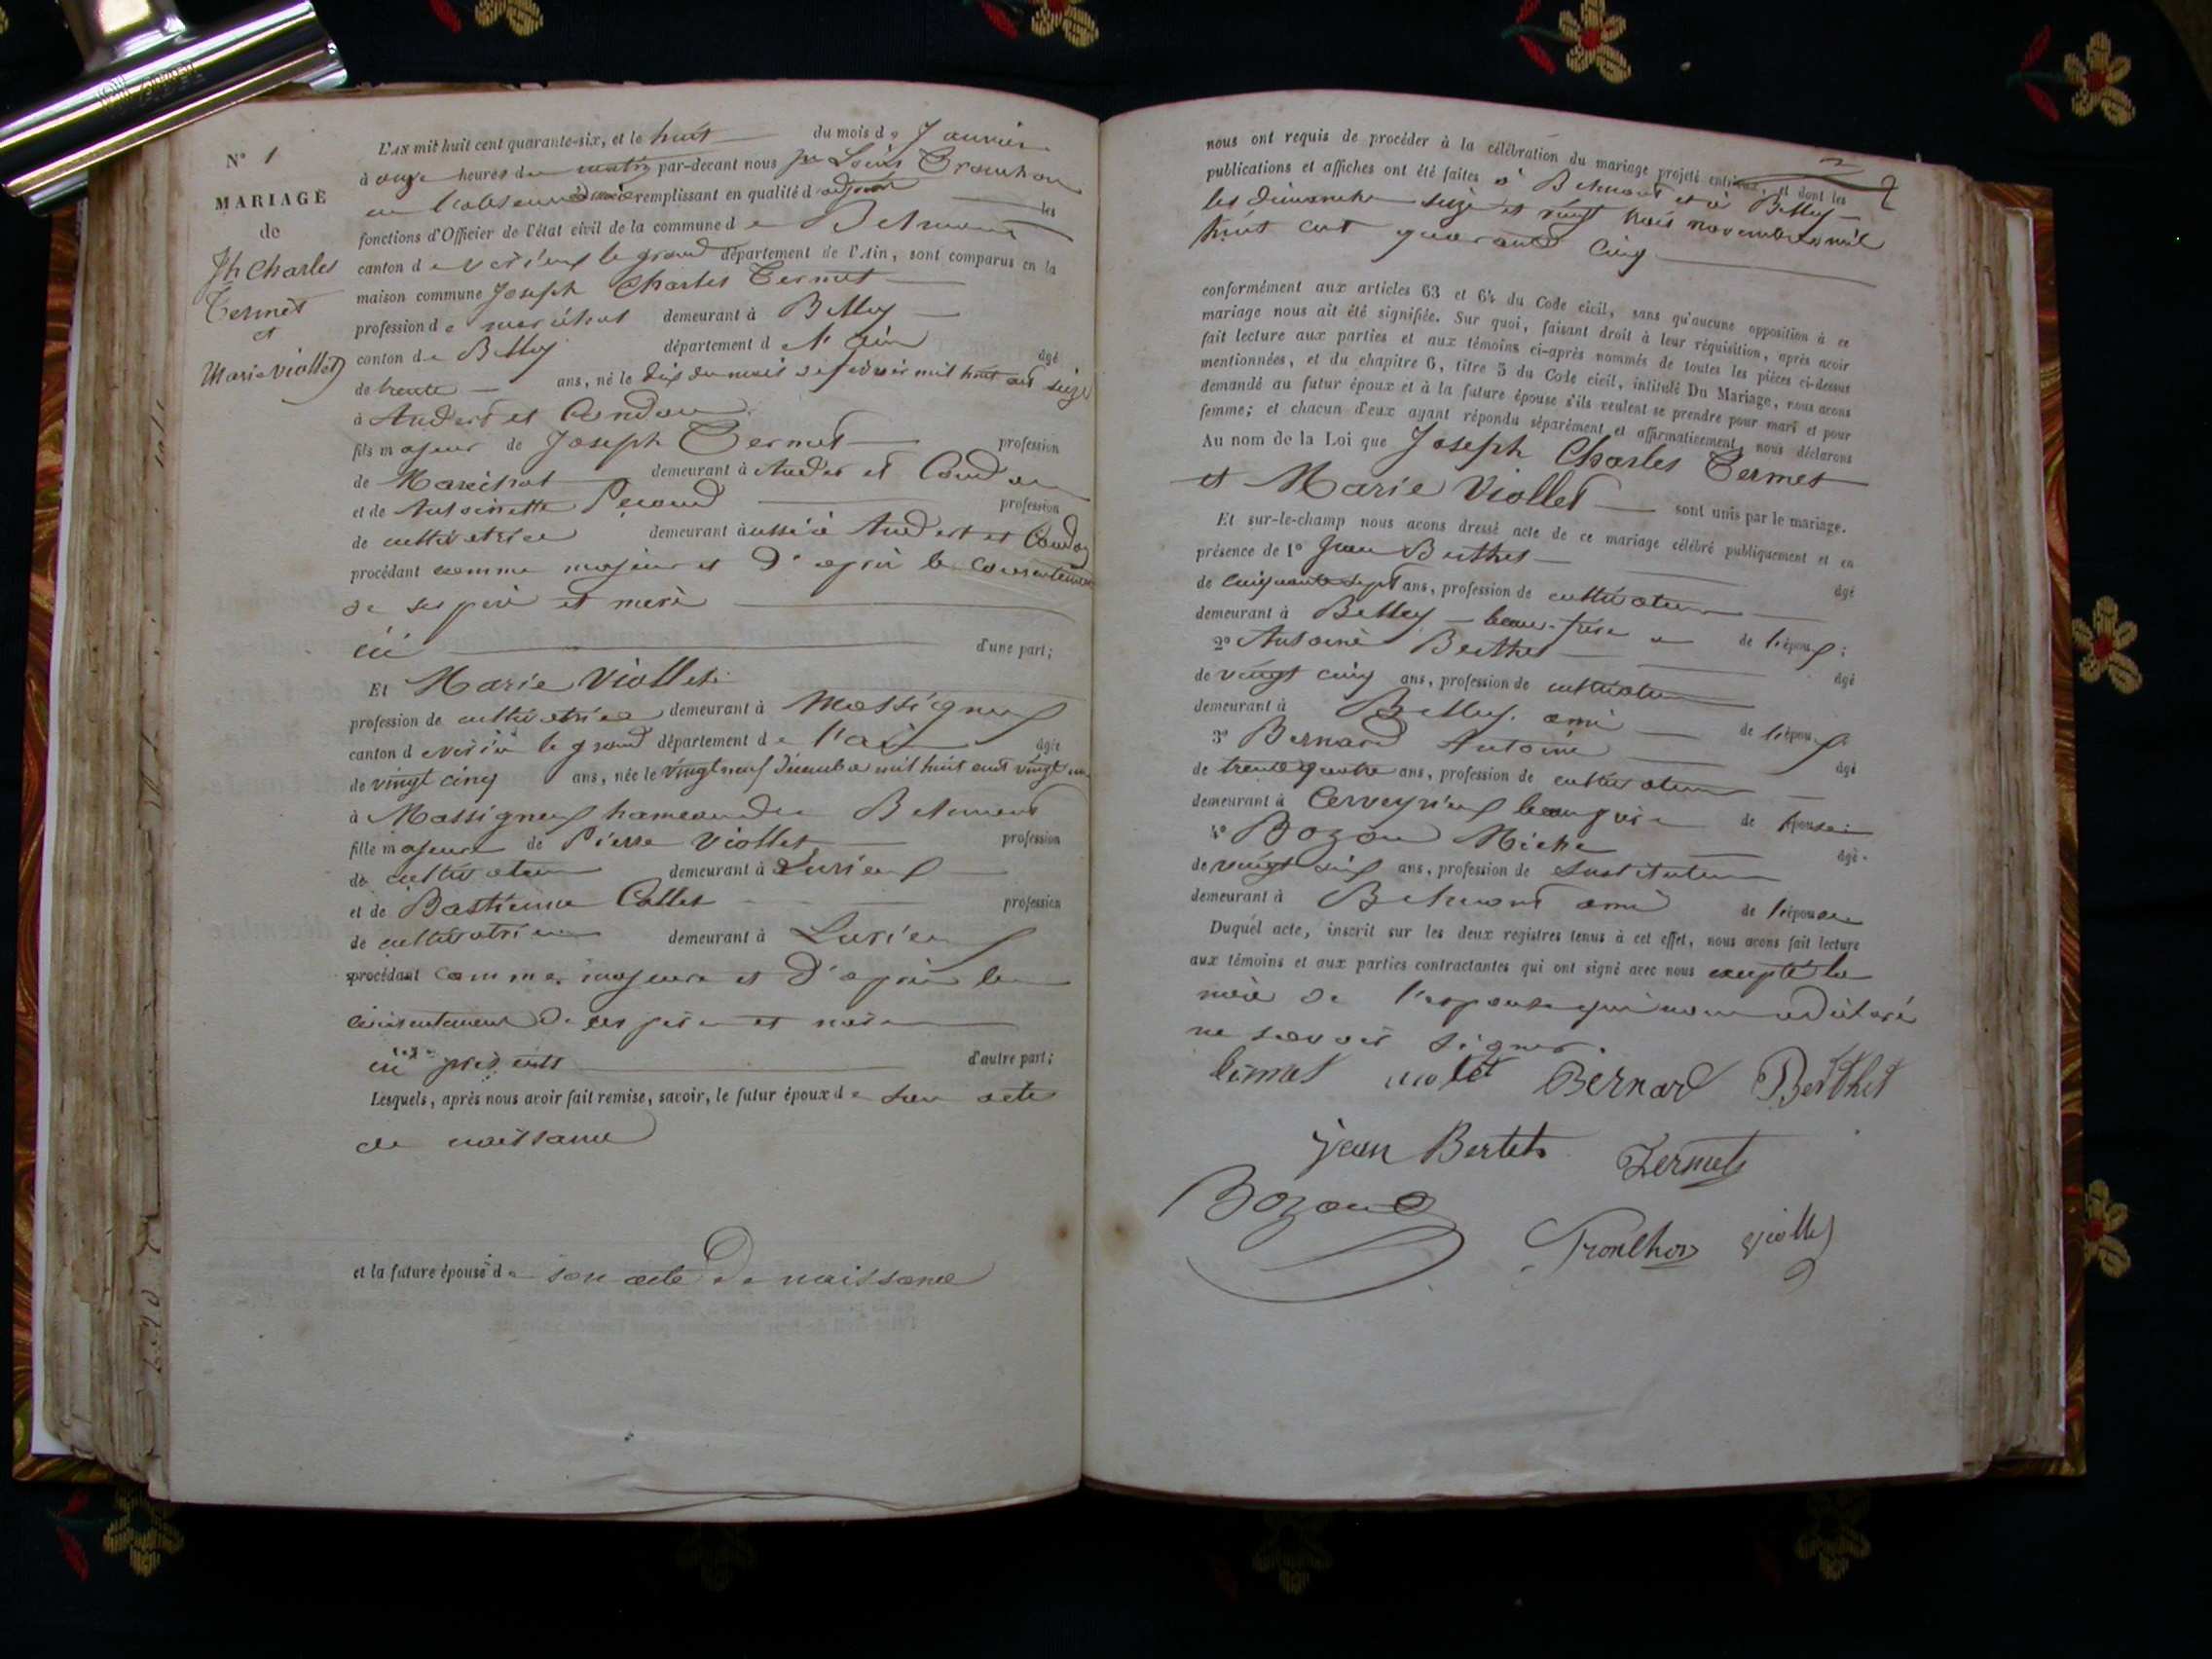 N° 1
MARIAGE
de
Jh Charles
Termet
et
Marie viollet
L'AN mil huit cent quarante-six, et le huit du mois de Janvier
à onze heures du matin par-devant nous Louis Tronchon
en l'absence du maire remplissant en qualité d'adjoint les
fonctions d'Officier de l'état civil de la commune de Belmont
canton de virieu le grand département de l'Ain, sont comparus en la
maison commune Joseph Charles Termet
profession de maréchal demeurant à Belley
canton de Belley département de l'ain âgé
de trente ans, né le dix du mois de février mil huit cent seize
à Andert et Condon
fils majeur de Joseph Termet profession
de Maréchal demeurant à Andert et Condon
et de Antoinette profession
de cultivatrice demeurant aussi à Andert et Condon
procédant comme majeur et d'après le consentement
de ses père et mère
ici d'une part;
Et Marie Viollet
profession de cultivatrice demeurant à Massignieu
canton de virieu le grand département de l'ain âgée
de vingt cinq ans, née le vingt neuf Décembre mil huit cent vingt
à Massignieu hameau de Belmont
fille majeure de Pierre Viollet profession
de cultivateur demeurant à Lurieu
et de Bastienne Collet profession
de cultivatrice demeurant à Lurieu
procédant comme majeure et d'après le
consentement de ses père et mère
ici présents d'autre part;
Lesquels, après nous avoir fait remise, savoir, le futur époux de son acte
de naissance
et la future épouse de son acte de naissance
2
nous ont requis de procéder à la célébration du mariage projeté entr'eux, et dont les
publications et affiches ont été faites à Belmont et à Belley
les dimanche seize et vingt trois novembre mil
huit cent quarante cinq
conformément aux articles 63 et 64 du Code civil, sans qu'aucune opposition à ce
mariage nous ait été signifiée. Sur quoi, faisant droit à leur réquisition, après avoir
fait lecture aux parties et aux témoins ci-après nommés de toutes les pièces ci-dessus
mentionnées, et du chapitre 6, titre 5 du Code civil, intitulé Du Mariage, nous avons
demandé au futur époux et à la future épouse s'ils veulent se prendre pour mari et pour
femme; et chacun d'eux ayant répondu séparément et affirmativement, nous déclarons
Au nom de la Loi que Joseph Charles Termet
et Marie Viollet sont unis par le mariage.
Et sur-le-champ nous avons dressé acte de ce mariage célébré publiquement et en
présence de 1° Jean Berthet âgé
de cinquante sept ans, profession de cultivateur
demeurant à Belley beau-frère de l'époux;
2° Antoine Berthet âgé
de vingt cinq ans, profession de cultivateur
demeurant à Belley. ami de l'époux
3° Bernard Antoine âgé
de trente quatre ans, profession de cultivateur
demeurant à Cerveyrieu beau frère de l'épouse
4° Bozon Miche âgé
de vingt six ans, profession de Instituteur
demeurant à Belmont ami de l'épouse
Duquel acte, inscrit sur les deux registres tenus à cet effet, nous avons fait lecture
aux témoins et aux parties contractantes qui ont signé avec nous excepté la
mère de l'espouse qui nous a déclaré
ne savoir signer.
termet violet Bernard Berthet
jean Bertet Termet
Bozon
Tronchon viollet